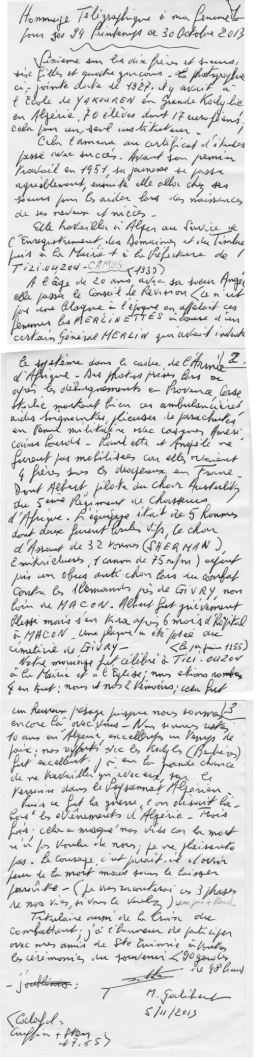 Hommage Télégraphique à ma femme 1
pour ses 94 Printemps ce 30 Octobre 2013
Sixième sur les dix frères et sœurs,
six filles et quatre garçons. La photographie
ci-jointe date de 1927, il y avait à
l'Ecole de YAKOUREN en Grande Kabylie
en Algérie, 70 élèves dont 17 européens,
cela pour un seul instituteur.
Cela l'amène au certificat d'études
passé avec succès. Avant son premier
travail en 1951, sa jeunesse se passa
agréablement, ensuite elle alla chez ses
sœurs pour les aider lors des naissances
de ses neveux et nièces.
Elle travailla à Alger au Service de
l'Enregistrement, des Domaines et du Timbre
puis à la Mairie et à la Préfecture de
TIZI-OUZOU - CAMUS (1939)
A l'âge de 20 ans avec sa sœur Angèle
elle passa le Conseil de Révision (ce n'est
pas une blague à l'époque on appelait ces
femmes les MERLINETTES à cause d'un
certain Général MERLIN qui avait inventé
le système dans le cadre de l'Armée 2
d'Afrique - Des photos prises lors ou
après les débarquements en Provence Corse
Italie montrent bien ces ambulancières
aides soignantes, plieuses de parachutes
en tenue militaire avec casques Améri-
cains lourds - et Angèle ne
furent pas mobilisées car elles avaient
4 frères sous les drapeaux en France -
Dont Albert pilote du Char Austerlitz
du 5ème Régiment de Chasseurs
d'Afrique. L'équipage était de 5 hommes
dont deux furent tués, le char
d'Assaut de 32 tonnes (SHERMAN),
2 mitrailleuses, 1 canon de 75 m/m) ayant
pris un obus anti-char lors du combat
contre les Allemands près de GIVRY, non
loin de MACON. Albert fut grièvement
blessé mais s'en tira après 6 mois d'hôpital
à MACON - Une plaque a été posée au
cimetière de GIVRY - (le 1er juin 1955)
Notre mariage fut célébré à TIZI-OUZOU
à la Mairie et à l'Eglise; nous étions nombre
4 en tout; nous et nos 2 témoins; cela fut
un heureux présage puisque nous sommes 3
encore là avec vous - Nous sommes restés
10 ans en Algérie, excellents en temps de
paix; nos rapports avec les Kabyles (Berbères)
fut excellent, j'ai eu la grande chance
de ne travailler qu'avec eux, sur le
terrain dans le Paysannat Algérien
Puis ce fut la guerre, l'on disait là-
bas "les évènements d'Algérie" - Trois
fois; cela a manqué nos vies car la mort
n'a pas voulu de nous; je ne plaisante
pas - Le courage, c'est parait-il d'avoir
peur de la mort mais sans le laisser
paraître - (je vous raconterai ces 3 phases
de nos vies, si vous le voulez)
Titulaire aussi de la Croix du
combattant; j'ai l'honneur de participer
avec mes amis de Ste Enimie à toutes
les cérémonies du souvenir (90 gardes
de 48 lieux)
M. Galibert
5/11/2013